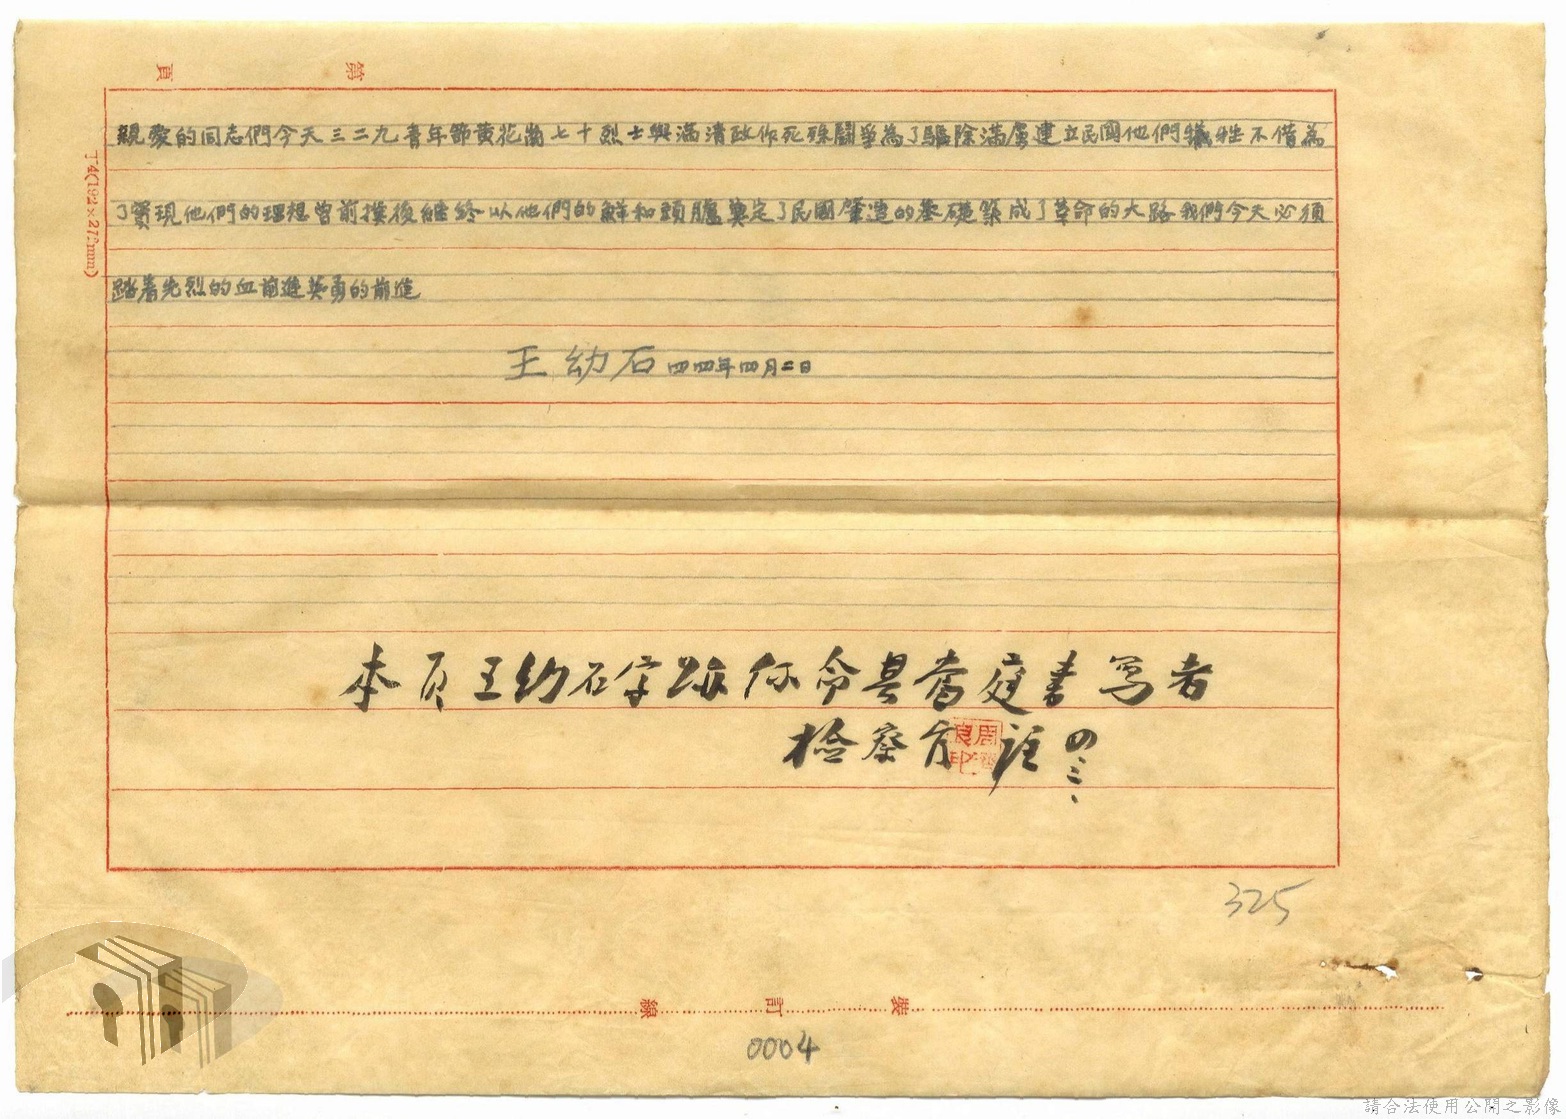 第 頁
親愛的同志們今天三二九青年節黃花崗七十烈士與滿清政作死殊鬪爭為了驅除滿虜建立民國他們犧牲不借為
了實現他們的理想曾前撲後繼終以他們的鮮和頭臚奠定了民國肇造的基礎築成了革命的大路我們今天必須
踏着先烈的血前進英勇的前進
王幼石 四四年四月二日
本頁王幼石字跡係命其當庭書寫者
檢察官 註 四.三.
周 良印
丁4(192×272mm)
325
裝 訂 線
0004
請合法使用公開之影像